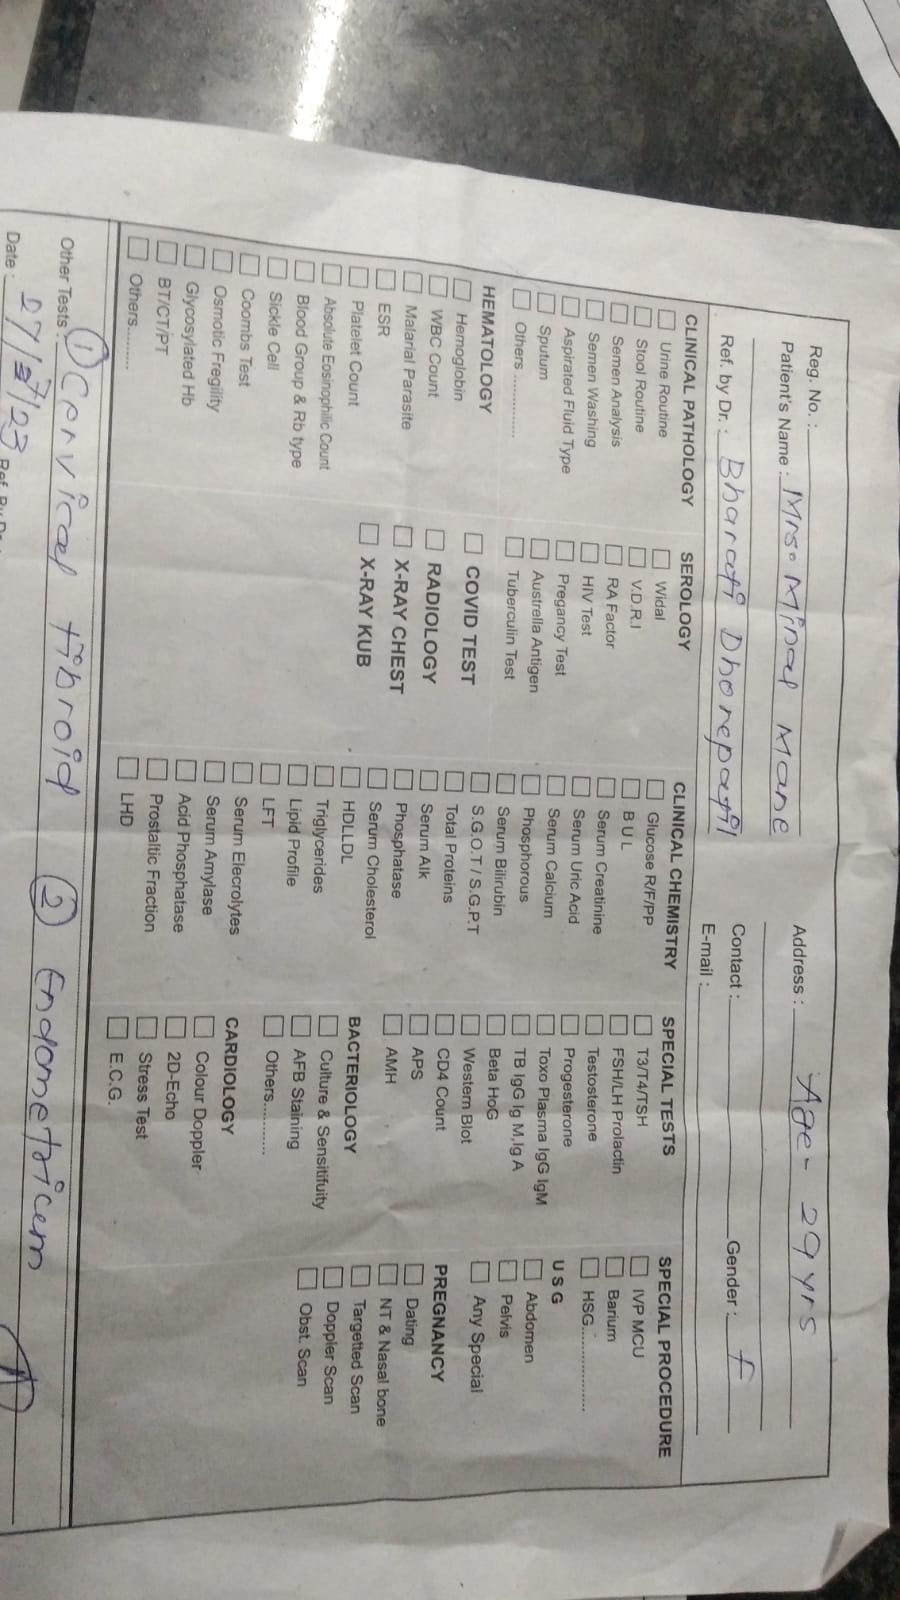 Reg. No. :
Patient's Name : Mrs. Minal Mane
Address : Age - 29 yrs
Ref. by Dr. : Bharati Dhorepatil
Contact : Gender : f
E-mail :
CLINICAL PATHOLOGY
Urine Routine
Stool Routine
Semen Analysis
Semen Washing
Aspirated Fluid Type
Sputum
Others .............
HEMATOLOGY
Hemoglobin
WBC Count
Malarial Parasite
ESR
Platelet Count
Absolute Eosinophilic Count
Blood Group & Rb type
Sickle Cell
Coombs Test
Osmotic Fregility
Glycosylated Hb
BT/CT/PT
Others...........
SEROLOGY
Widal
V.D.R.I
RA Factor
HIV Test
Pregancy Test
Austrella Antigen
Tuberculin Test
COVID TEST
RADIOLOGY
X-RAY CHEST
X-RAY KUB
CLINICAL CHEMISTRY
Glucose R/F/PP
B U L
Serum Creatinine
Serum Uric Acid
Serum Calcium
Phosphorous
Serum Bilirubin
S.G.O.T / S.G.P.T
Total Proteins
Serum Alk
Phosphatase
Serum Cholesterol
HDLLDL
Triglycerides
Lipid Profile
LFT
Serum Elecrolytes
Serum Amylase
Acid Phosphatase
Prostaltic Fraction
LHD
SPECIAL TESTS
T3/T4/TSH
FSH/LH Prolactin
Testosterone
Progesterone
Toxo Plasma IgG IgM
TB IgG Ig M,Ig A
Beta HoG
Western Blot
CD4 Count
APS
AMH
BACTERIOLOGY
Culture & Sensitifuity
AFB Staining
Others...........
CARDIOLOGY
Colour Doppler
2D-Echo
Stress Test
E.C.G.
SPECIAL PROCEDURE
IVP MCU
Barium
HSG.................
U S G
Abdomen
Pelvis
Any Special
PREGNANCY
Dating
NT & Nasal bone
Targetted Scan
Doppler Scan
Obst. Scan
Other Tests : ① Cervical fibroid ② Endometricem
Date : 27/7/23